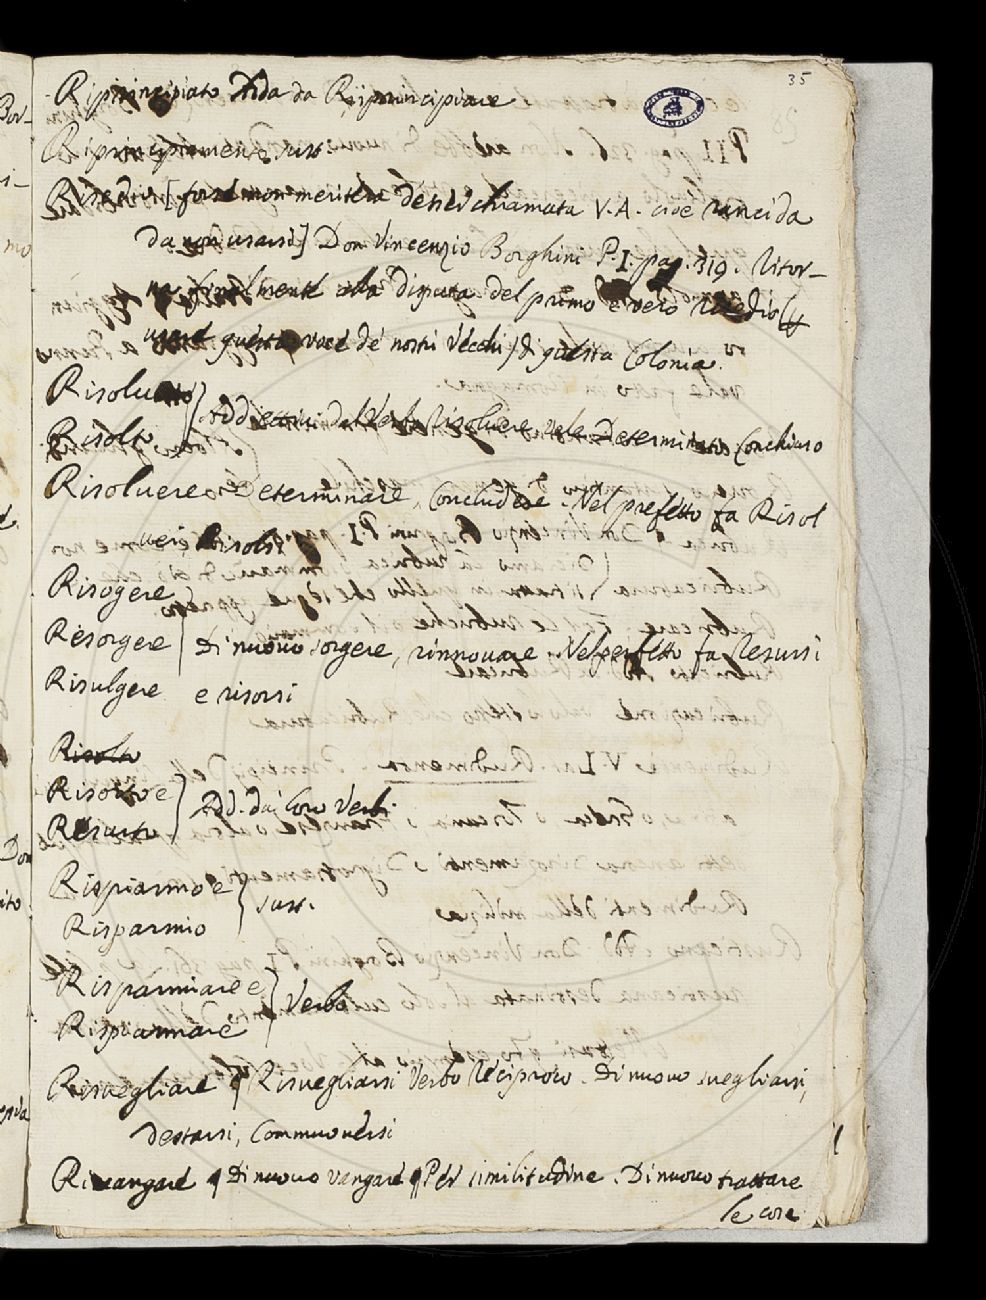 35
Riprincipiato Add. da Riprincipiare
Riprincipiamento sust.
Risedio [forse non meriterà d'esser chiamata V. A. cioè rancida
da non usarsi] Don Vincenzio Borghini P. I. pag. 319. Ritor-
no finalmente alla disputa del primo e vero risedio (per
usare questa voce de' nostri Vecchi) di questa Colonia.
Risoluto
Risolto
Addiettivi dal Verbo Risolvere vale Determinato Conchiuso
Risoluere Determinare, Concludere. Nel prefetto fa Risol
vei, Risolsi
Risogere
Resorgere
Risulgere
Di nuovo sorgere, rinnovare. Nel perfetto fa Resursi
e risorsi
Risolto
Risorto e
Resurto
Add. da' loro Verbi
Rispiarmo e
Risparmio
sust.
Risparmiare e
Rispiarmare
Verbo
Risvegliare ¶ Risvegliarsi Verbo reciproco. Di nuovo svegliarsi,
destarsi, Commuoversi
Rivangare ¶ Di nuovo vangare ¶ Per similitudine. Di nuovo trattare
le cose